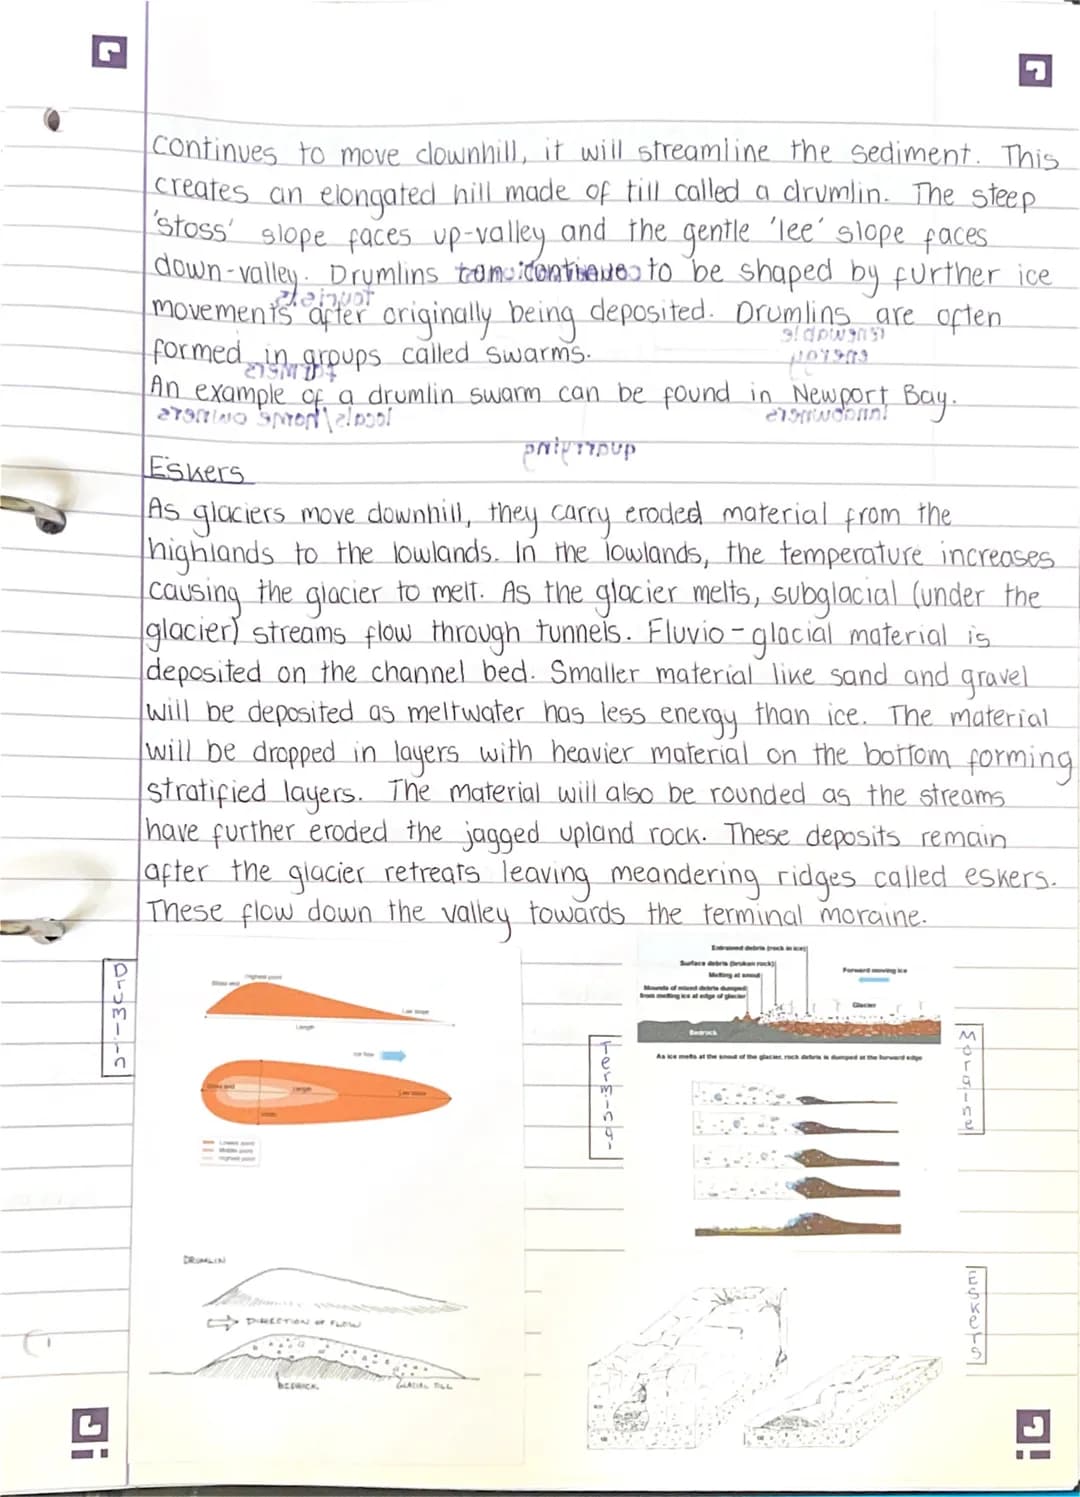 continues to move downhill, it will streamline the sediment. This
creates an elongated hill made of till called a drumlin. The steep
'stoss' slope faces up-valley and the gentle 'lee' slope faces
down-valley. Drumlins can continue to be shaped by further ice
movements after originally being deposited. Drumlins are often
formed in groups called swarms.
An example of a drumlin swarm can be found in Newport Bay.
quarrying
Eskers
As glaciers move downhill, they carry eroded material from the
highlands to the lowlands. In the lowlands, the temperature increases
causing the glacier to melt. As the glacier melts, subglacial (under the
glacier) streams flow through tunnels. Fluvio-glacial material is
deposited on the channel bed. Smaller material like sand and gravel
will be deposited as meltwater has less energy than ice. The material
will be dropped in layers with heavier material on the bottom forming
stratified layers. The material will also be rounded as the streams
have further eroded the jagged upland rock. These deposits remain
after the glacier retreats leaving meandering ridges called eskers.
These flow down the valley towards the terminal moraine.
Drumlin
Highest point
Stoss end
Lee slope
Length
Ice flow
Stoss end
Length
Lee slope
Width
Lowest point
Middle point
Highest point
DRUMLIN
DIRECTION OF FLOW
BEDROCK
GLACIAL TILL
Terminal
Entrained debris (rock in ice)
Surface debris (broken rock)
Melting at snout
Mounds of mixed debris dumped
from melting ice at edge of glacier
Forward moving ice
Glacier
Bedrock
As ice melts at the snout of the glacier, rock debris is dumped at the forward edge
Moraine
Eskers